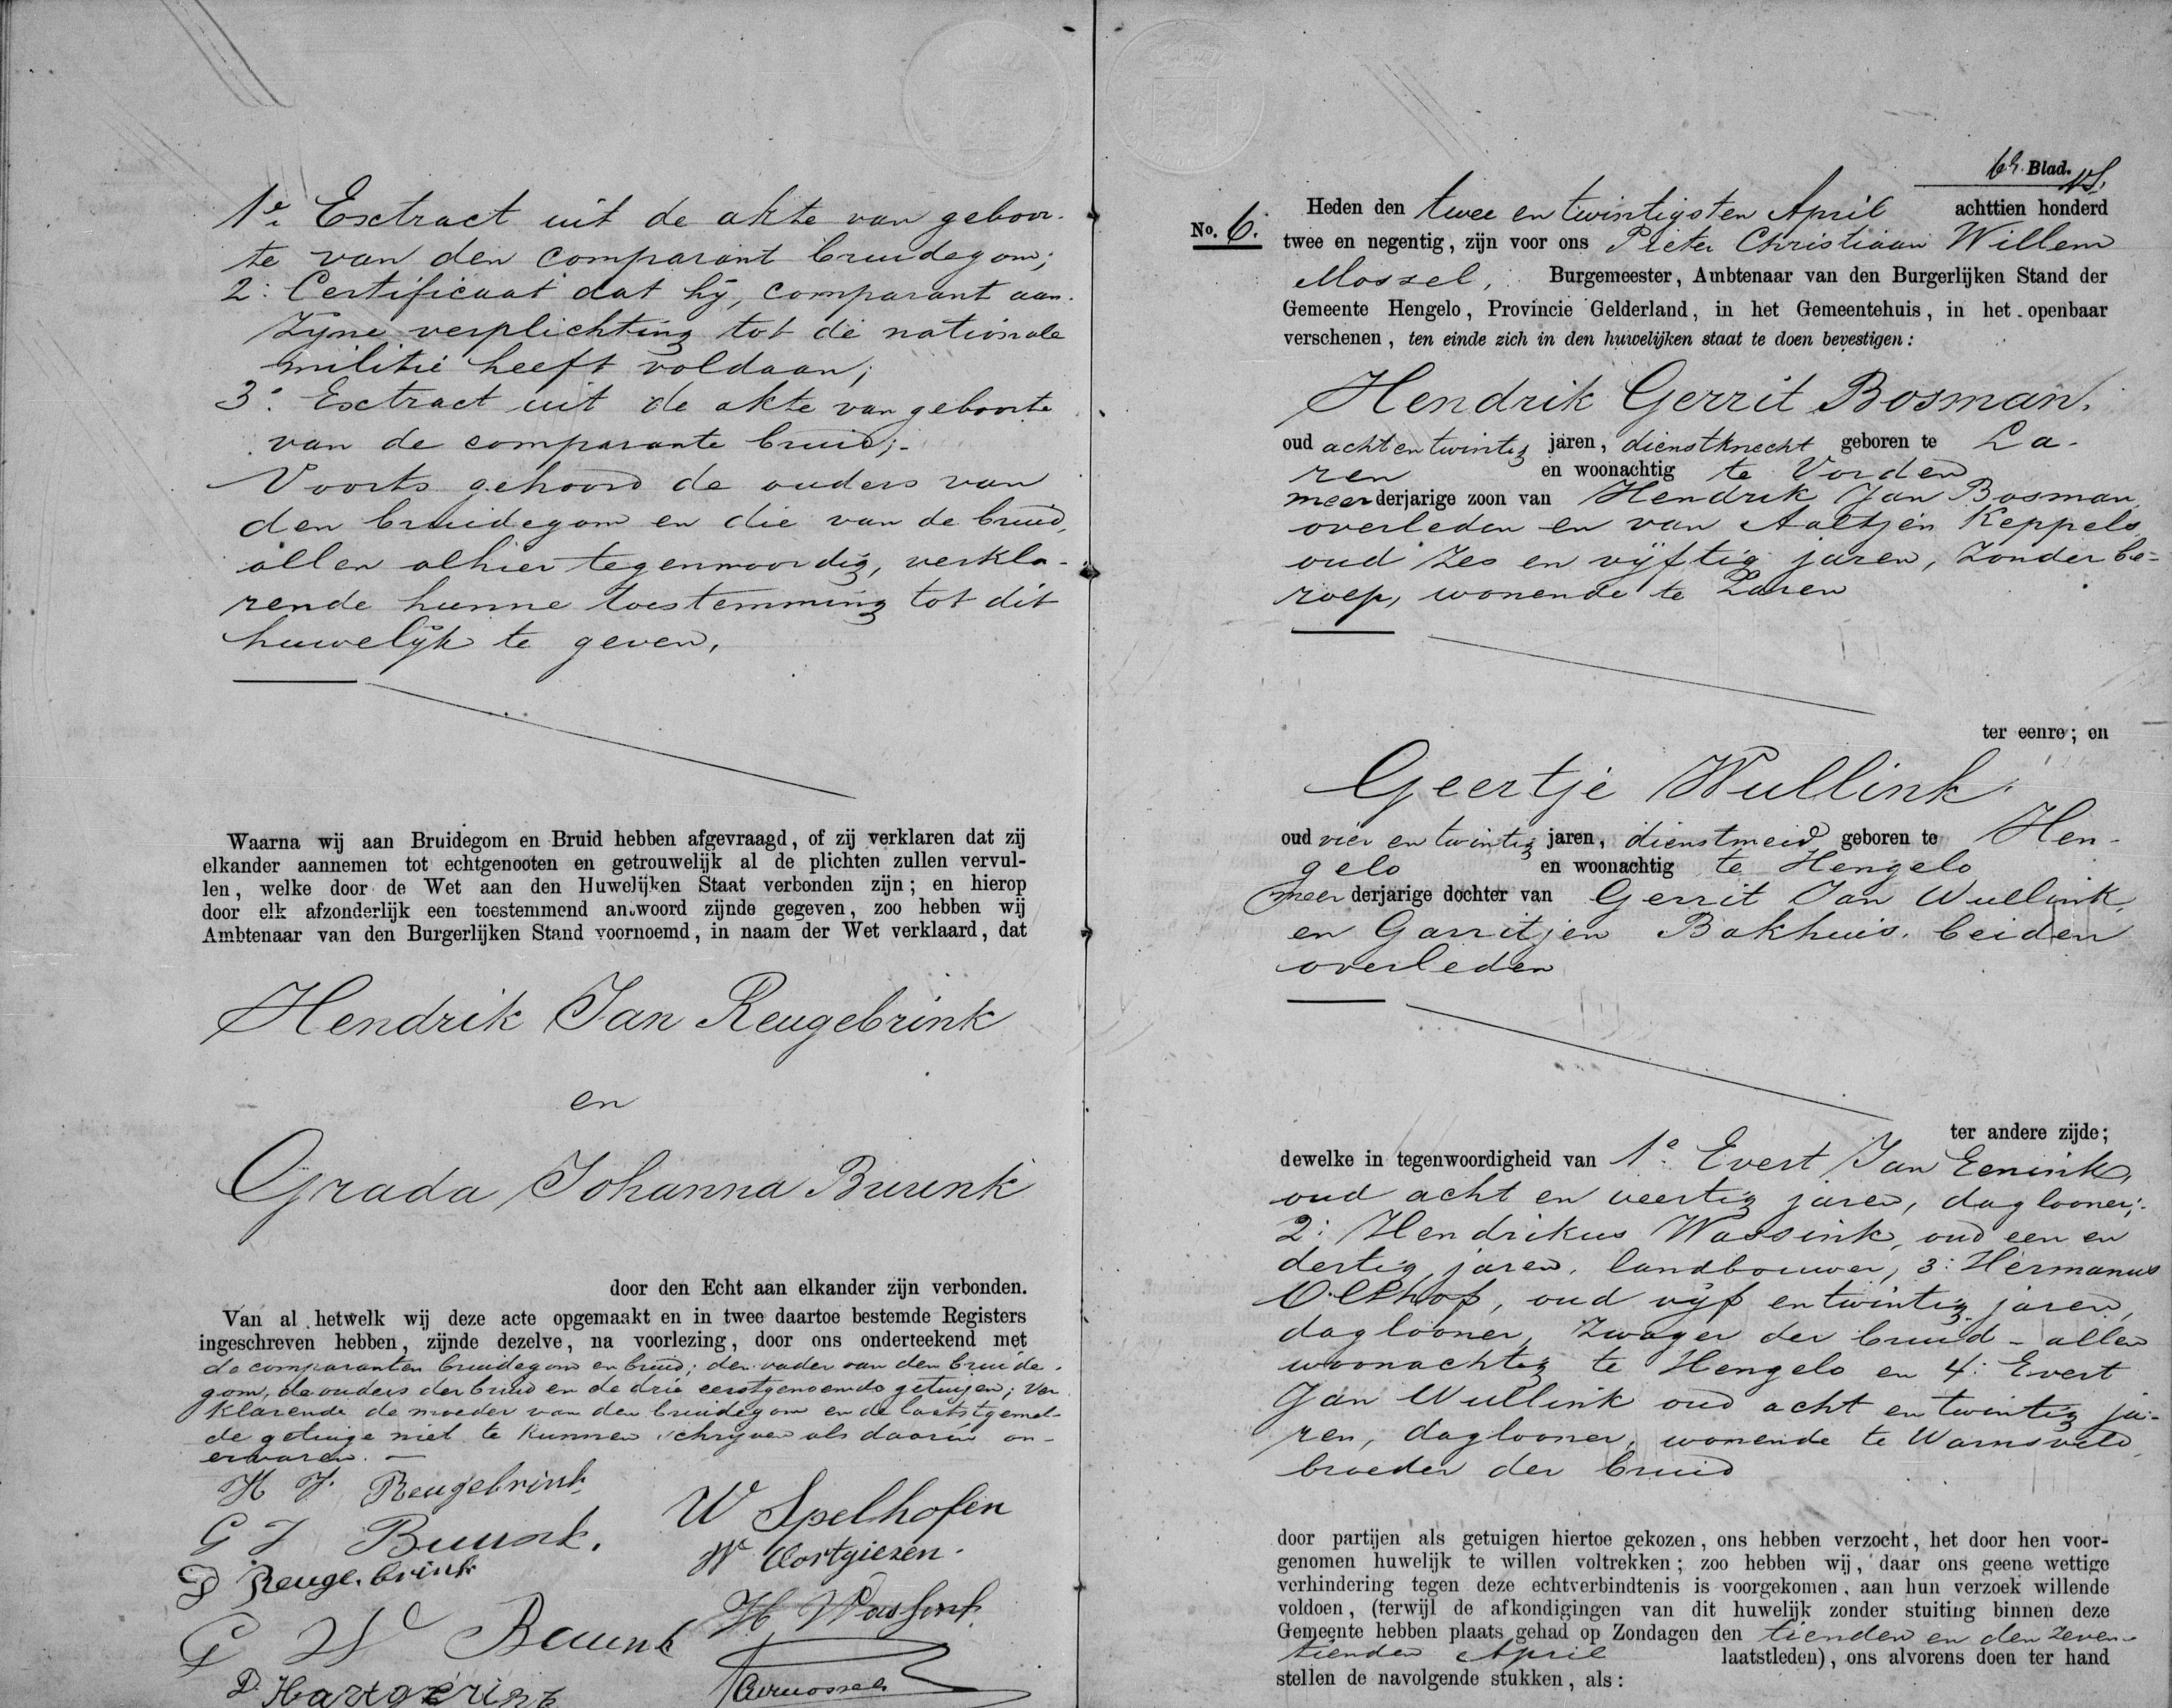 1e. Exctract uit de akte van geboor-
te van den comparant bruidegom;
2: Certificaat dat hij, comparant aan
zyne verplichting tot de nationale
militie heeft voldaan;
3o. Exctract uit de akte van geboorte
van de comparante bruid;-
Voorts gehoord de ouders van
den bruidegom en die van de bruid,
allen alhier tegenwoordig, verkla-
rende hunne toestemming tot dit
huwelijk te geven.
Waarna wij aan Bruidegom en Bruid hebben afgevraagd, of zij verklaren dat zij
elkander aannemen tot echtgenooten en getrouwelijk al de plichten zullen vervul-
len, welke door de Wet aan den Huwelijken Staat verbonden zijn; en hierop
door elk afzonderlijk een toestemmend antwoord zijnde gegeven, zoo hebben wij
Ambtenaar van den Burgerlijken Stand voornoemd, in naam der Wet verklaard, dat
Hendrik Jan Reugebrink
en
Grada Johanna Buunk
door den Echt aan elkander zijn verbonden.
Van al hetwelk wij deze acte opgemaakt en in twee daartoe bestemde Registers
ingeschreven hebben, zijnde dezelve, na voorlezing, door ons onderteekend met
de comparanten bruidegom en bruid; den vader van den bruide-
gom, de ouders der bruid en de drie eerstgenoemde getuigen; ver
klarende de moeder van den bruidegom en de laatstgemel-
de getuige niet te kunnen schryven als daarin on-
ervaren. —
H J. Reugebrink
G J Buunk.
D Reugebrink
G W Buunk
D. Hartgerink
W Spelhofen
W Oortgiezen.
H. Wassink
6e. Blad.
No. 6.
Heden den twee en twintigsten April achttien honderd
twee en negentig, zijn voor ons Pieter Christiaan Willem
Mossel, Burgemeester, Ambtenaar van den Burgerlijken Stand der
Gemeente Hengelo, Provincie Gelderland, in het Gemeentehuis, in het openbaar
verschenen, ten einde zich in den huwelijken staat te doen bevestigen:
Hendrik Gerrit Bosman.
oud acht en twintig jaren, dienstknecht geboren te La-
ren en woonachtig te Vorden
meerderjarige zoon van Hendrik Jan Bosman
overleden en van Aaltjen Keppels
oud zes en vijftig jaren, zonder be-
roep, wonende te Laren
ter eenre; en
Geertje Wullink
oud vier en twintig jaren, dienstmeid geboren te Hen-
gelo en woonachtig te Hengelo
meerderjarige dochter van Gerrit Jan Wullink
en Garritjen Bakhuis. beiden
overleden
ter andere zijde;
dewelke in tegenwoordigheid van 1o. Evert Jan Eenink,
oud acht en veertig jaren, daglooner;-
2: Hendrikus Wassink, oud een en
dertig jaren, landbouwer, 3: Hermanus
Olthof, oud vijf en twintig jaren,
daglooner, zwager der bruid - allen
woonachtig te Hengelo en 4: Evert
Jan Wullink oud acht en twintig ja-
ren, daglooner, wonende te Warnsveld
broeder der bruid
door partijen als getuigen hiertoe gekozen, ons hebben verzocht, het door hen voor-
genomen huwelijk te willen voltrekken; zoo hebben wij, daar ons geene wettige
verhindering tegen deze echtverbindtenis is voorgekomen, aan hun verzoek willende
voldoen, (terwijl de afkondigingen van dit huwelijk zonder stuiting binnen deze
Gemeente hebben plaats gehad op Zondagen den tienden en den zeven-
tienden April laatstleden), ons alvorens doen ter hand
stellen de navolgende stukken, als: